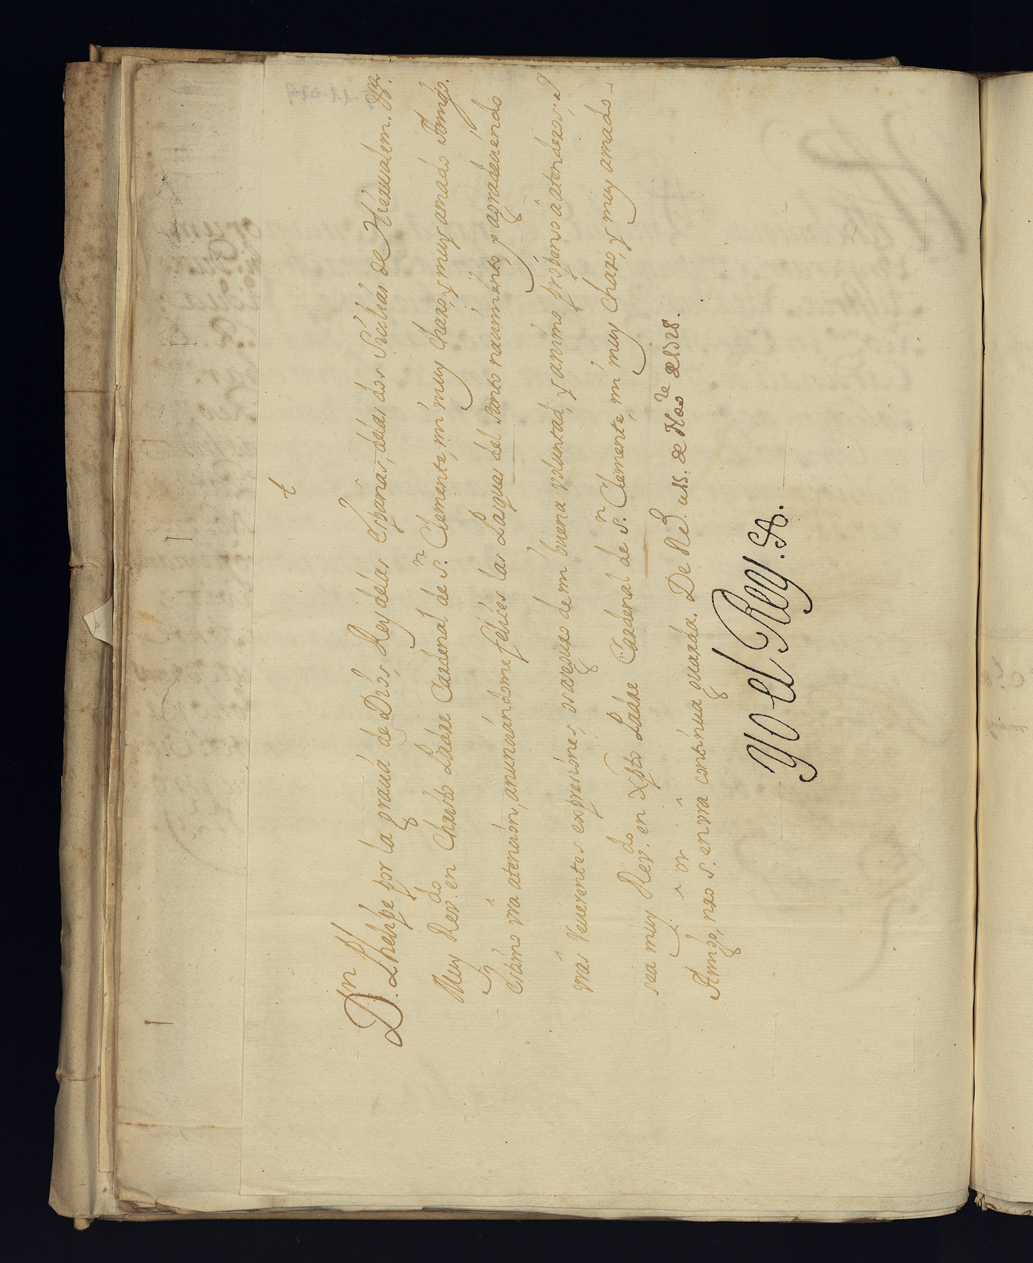 +
Dn. Phelipe por la gracia de Dios, Rey de las Españas, de las dos Sicilias de Hierusalem. &ca
Muy Revdo. en Christo Padre Cardenal de Sn. Clemente, mi muy charo, y muy amado Amigo.
Estimo vra atencion, anunciandome felices las Pasquas del Santo nacimiento, y agradeciendo
vras reverentes expresiones, os aseguro de mi buena voluntad, y animo propenso à atenderos. Y
sea muy Revdo. en Xpto Padre Cardenal de Sn. Clemente, mi muy charo, y muy amado
Amigo, nro Sor. en vra continua guarda. De Rl. a 15. de Nore de 1528.
Yo el Rey.